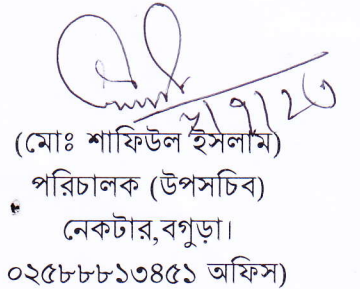 (মোঃ শাফিউল ইসলাম)
পরিচালক (উপসচিব)
নেকটার,বগুড়া।
০২৫৮৮৮১৩৪৫১ অফিস)